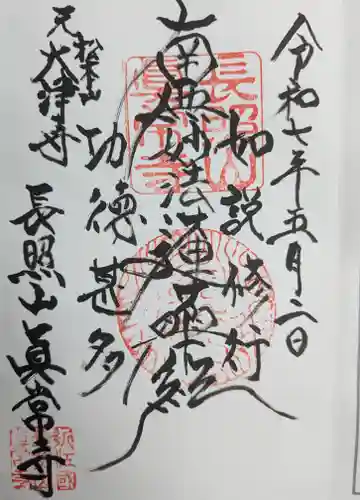 令和七年五月二日
如説修行
南無妙法蓮華経
功徳甚多
元
松本山
大津寺
長照山真常寺